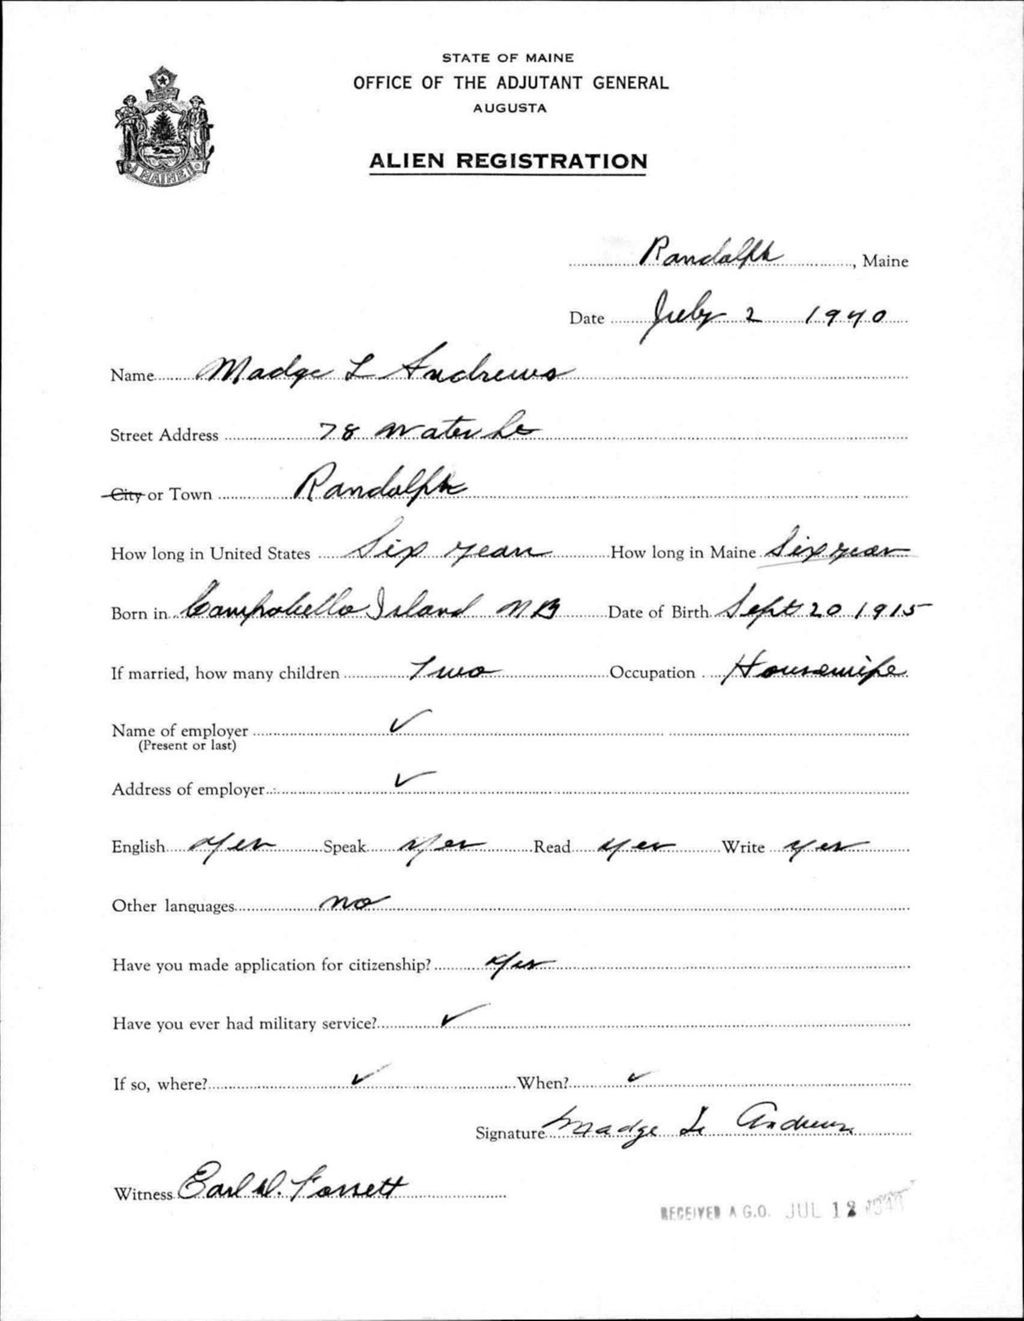 STATE OF MAINE
OFFICE OF THE ADJUTANT GENERAL
AUGUSTA
ALIEN REGISTRATION
MAINE
Randolph, Maine
Date July 2 1940
Name Madge L Andrews
Street Address 78 Water St
City or Town Randolph
How long in United States Six years How long in Maine Six years
Born in Campobello Island NB Date of Birth Sept 20 1915
If married, how many children Two Occupation Housewife
Name of employer ✓
(Present or last)
Address of employer ✓
English Yes Speak Yes Read Yes Write Yes
Other languages no
Have you made application for citizenship? Yes
Have you ever had military service? ✓
If so, where? ✓ When? ✓
Signature Madge L Andrews
Witness Earl
RECEIVED A.G.O. JUL 12 1940